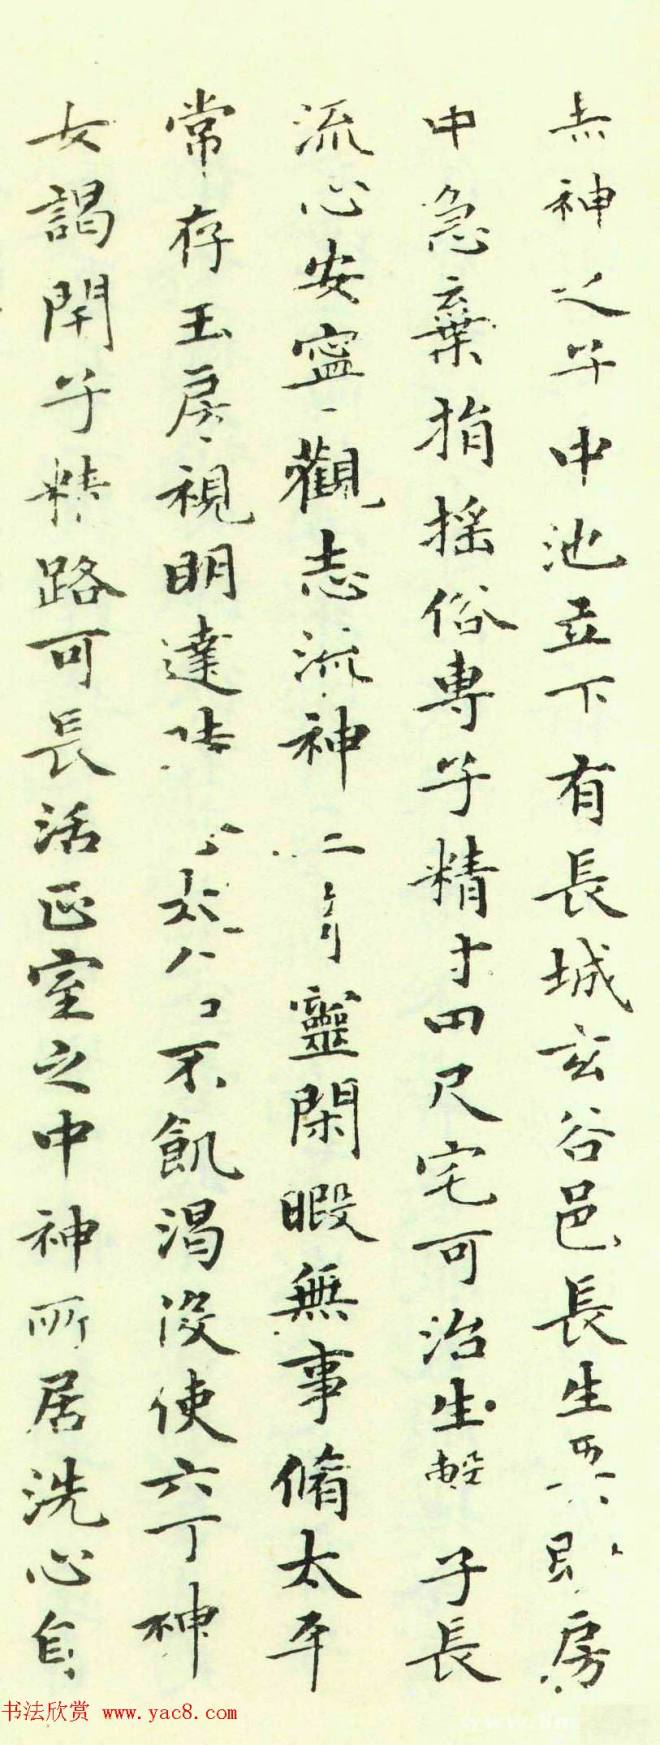 赤神之子中池立下有長城玄谷邑長生要眇房
中急棄捐搖俗專子精寸田尺宅可治生繫子長
流心安寧觀志流神三奇靈閑暇無事脩太平
常存玉房視明達時念大倉不飢渴役使六丁神
女謁閉子精路可長活正室之中神所居洗心自
书法欣赏 www.yac8.com